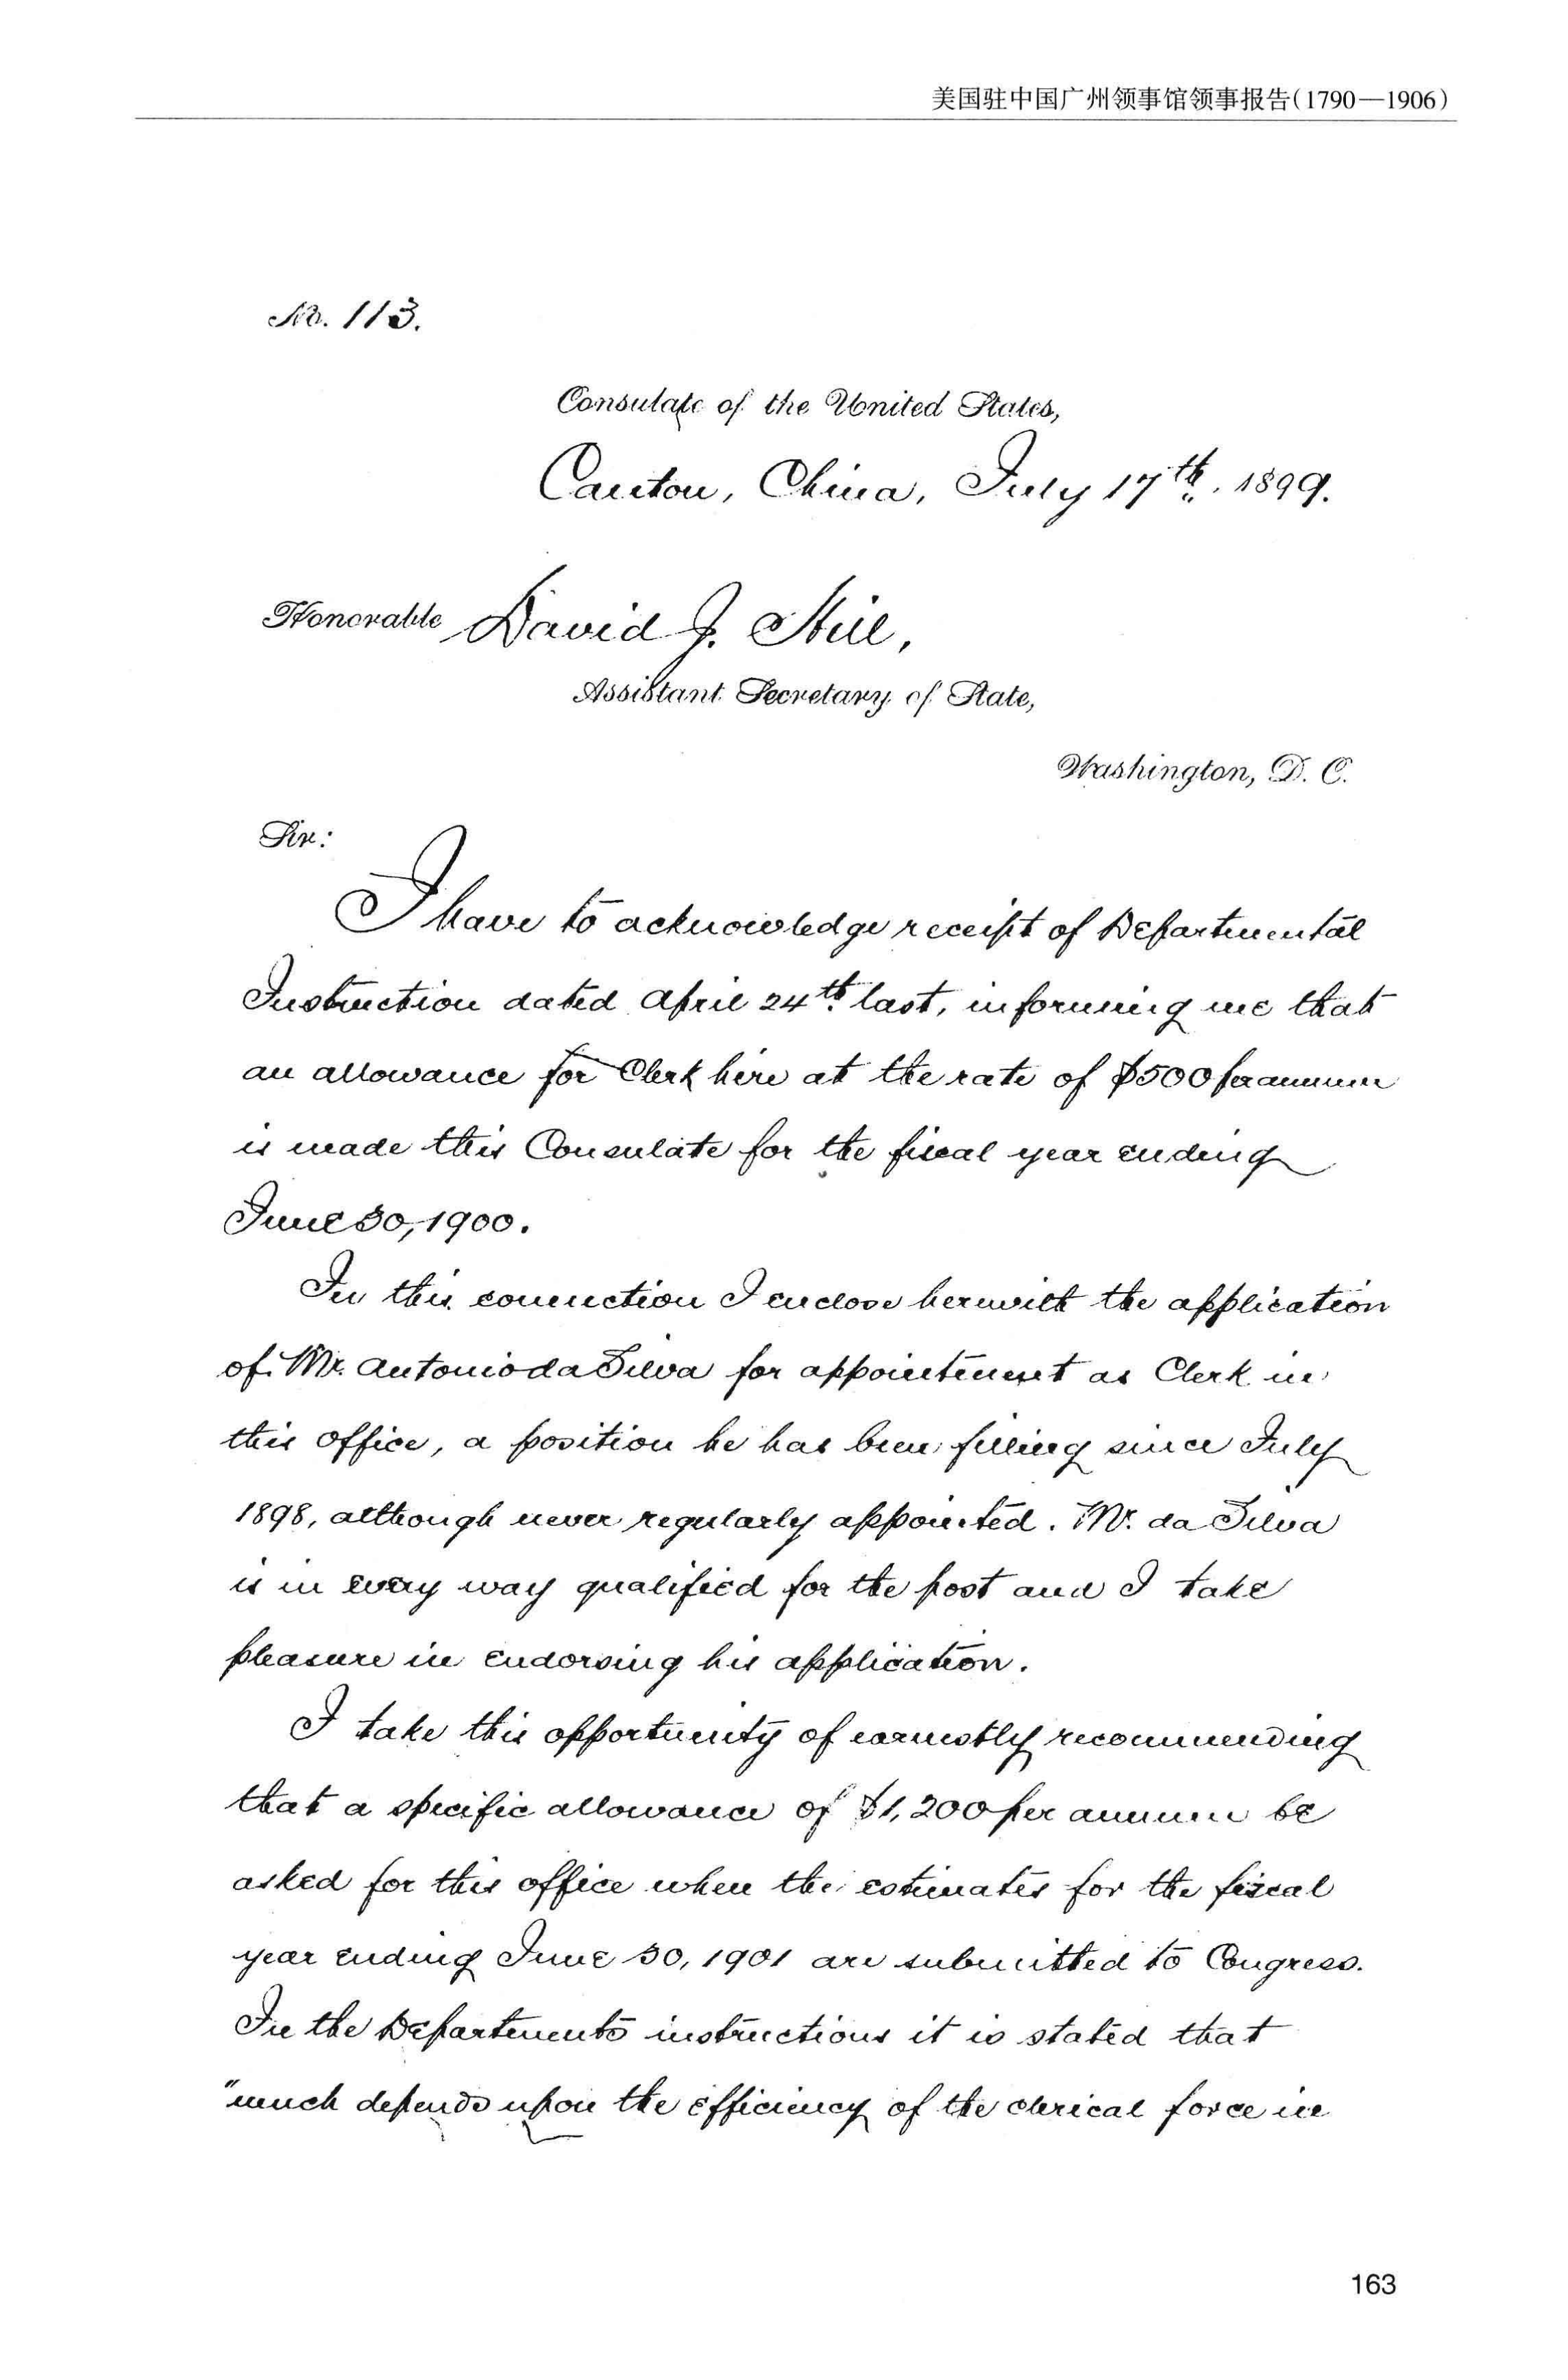 美国驻中国广州领事馆领事报告(1790—1906)
No. 113.
Consulate of the United States,
Canton, China, July 17th, 1899.
Honorable David J. Hill,
Assistant Secretary of State,
Washington, D. C.
Sir:
I have to acknowledge receipt of Departmental
Instruction dated April 24th last, informing me that
an allowance for Clerk hire at the rate of $500 per annum
is made this Consulate for the fiscal year ending
June 30, 1900.
In this connection I enclose herewith the application
of Mr. Antonio da Silva for appointment as Clerk in
this office, a position he has been filling since July
1898, although never regularly appointed. Mr. da Silva
is in every way qualified for the post and I take
pleasure in endorsing his application.
I take this opportunity of earnestly recommending
that a specific allowance of $1,200 per annum be
asked for this office when the estimates for the fiscal
year ending June 30, 1901 are submitted to Congress.
In the Departments instructions it is stated that
"much depends upon the efficiency of the clerical force in
163